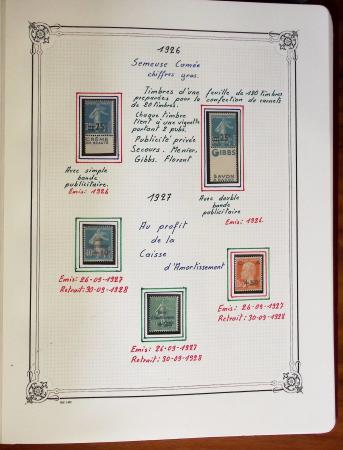 1926
Semeuse Camée
chiffres gras.
Timbres d'une feuille de 180 timbres
préparées pour la confection de carnets
de 20 timbres.
Chaque timbre
tient à une vignette
portant 2 pubs.
Publicité privée
Secours. Menier,
Gibbs. Florent
CRÈME
DE BEAUTÉ
GIBBS
SAVON
Avec simple
bande
publicitaire.
Emis: 1926
Avec double
bande
publicitaire
Emis: 1926.
1927
Au profit
de la
Caisse
d'Amortissement
Emis: 26-09-1927
Retrait: 30-09-1928
Emis: 26-09-1927
Retrait: 30-09-1928
Emis: 26-09-1927
Retrait: 30-09-1928